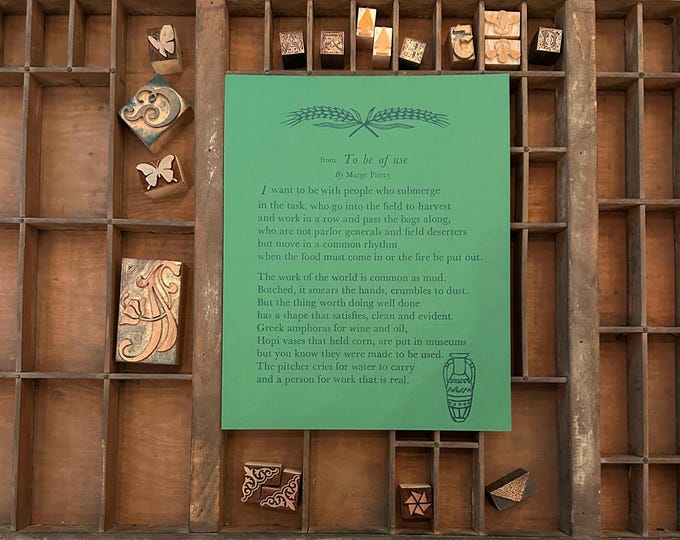 from To be of use
By Marge Piercy
I want to be with people who submerge
in the task, who go into the field to harvest
and work in a row and pass the bags along,
who are not parlor generals and field deserters
but move in a common rhythm
when the food must come in or the fire be put out.
The work of the world is common as mud.
Botched, it smears the hands, crumbles to dust.
But the thing worth doing well done
has a shape that satisfies, clean and evident.
Greek amphoras for wine and oil,
Hopi vases that held corn, are put in museums
but you know they were made to be used.
The pitcher cries for water to carry
and a person for work that is real.